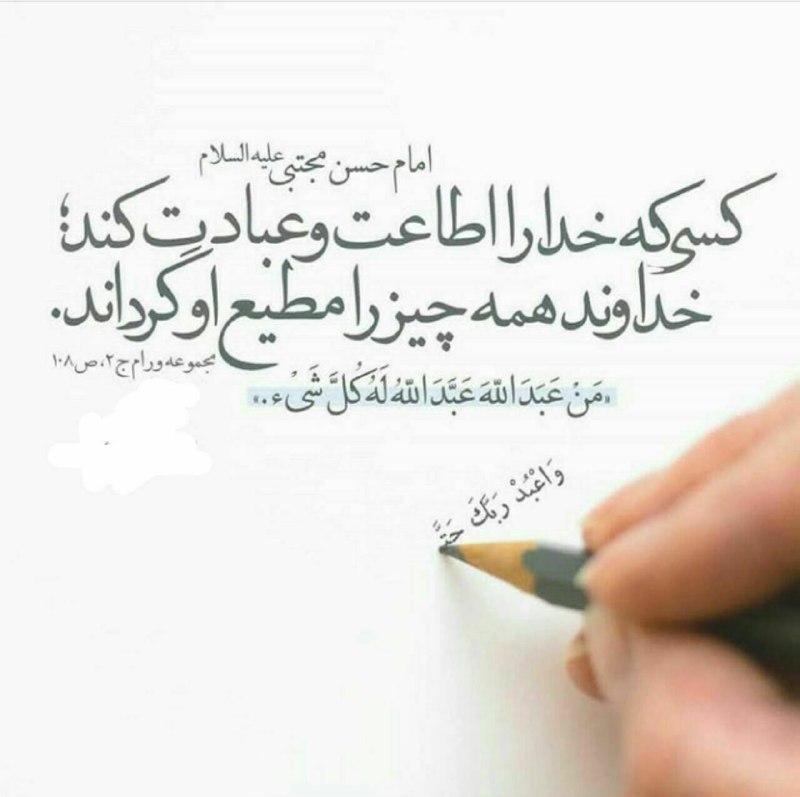 امام حسن مجتبی علیه السلام
کسی که خدا را اطاعت و عبادت کند؛
خداوند همه چیز را مطیع او گرداند.
مجموعه ورام ج۲، ص۱۰۸
«مَنْ عَبَدَ اللّٰهَ عَبَّدَ اللّٰهُ لَهُ کُلَّ شَیْء.»
وَاعْبُدْ رَبَّكَ حَتَّ